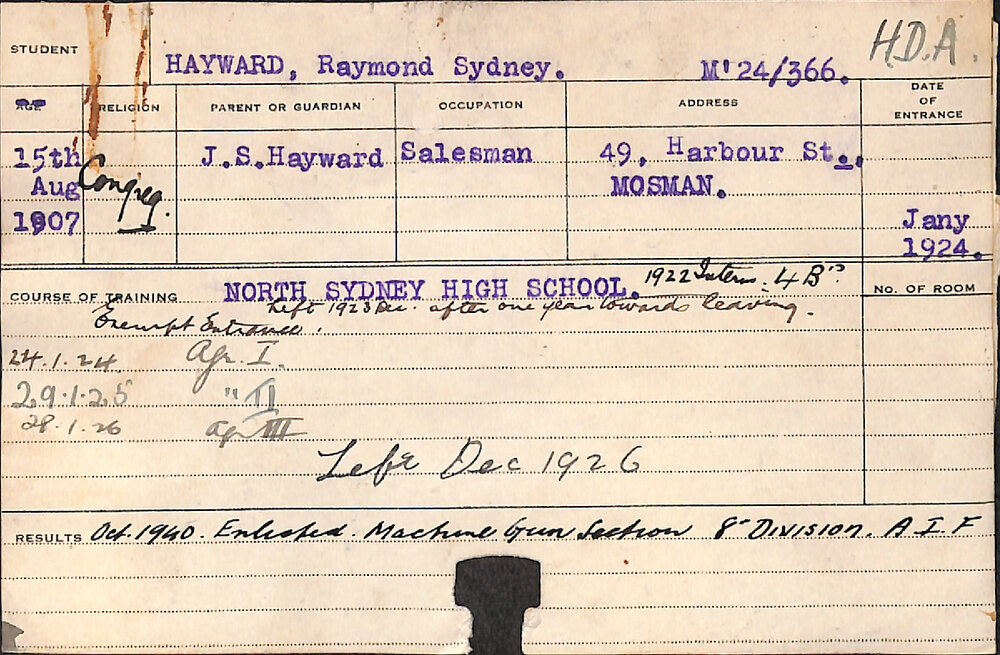 H.D.A.
STUDENT HAYWARD, Raymond Sydney. M'24/366.
AGE RELIGION PARENT OR GUARDIAN OCCUPATION ADDRESS DATE OF ENTRANCE
15th Congreg. J.S.Hayward Salesman 49, Harbour St.,
Aug MOSMAN.
1907 Jany
1924.
COURSE OF TRAINING NORTH SYDNEY HIGH SCHOOL. 1922 Interm. 4B" NO. OF ROOM
Left 1923 Dec. after one year towards leaving.
Exempt Entrance.
24.1.24. Agr. I.
29.1.25 " II
28.1.26 Agr III
Left Dec 1926
RESULTS Oct. 1940. Enlisted. Machine Gun Section 8" DIVISION. A.I.F